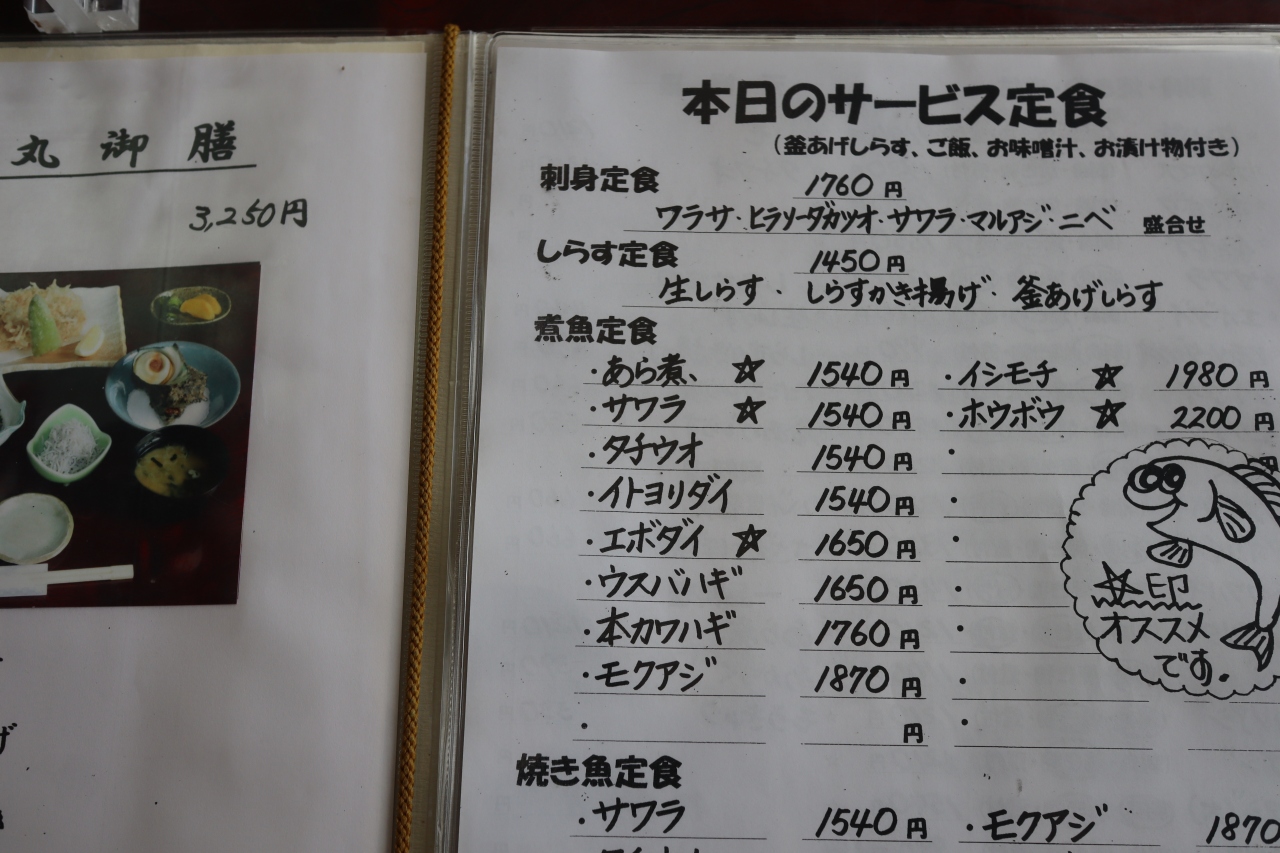 丸御膳
3,250円
げ
本日のサービス定食
(釜あげしらす、ご飯、お味噌汁、お漬け物付き)
刺身定食 1760円
ワラサ・ヒラソーダカツオ・サワラ・マルアジ・ニベ 盛合せ
しらす定食 1450円
生しらす・しらすかき揚げ・釜あげしらす
煮魚定食
・あら煮、☆ 1540円 ・イシモチ ☆ 1980円
・サワラ ☆ 1540円 ・ホウボウ ☆ 2200円
・タチウオ 1540円 ・ 円
・イトヨリダイ 1540円 ・
・エボダイ ☆ 1650円 ・
・ウスバハギ 1650円 ・
・本カワハギ 1760円 ・
・モクアジ 1870円 ・
・ 円 ・
☆印
オススメ
です.
焼き魚定食
・サワラ 1540円 ・モクアジ 1870